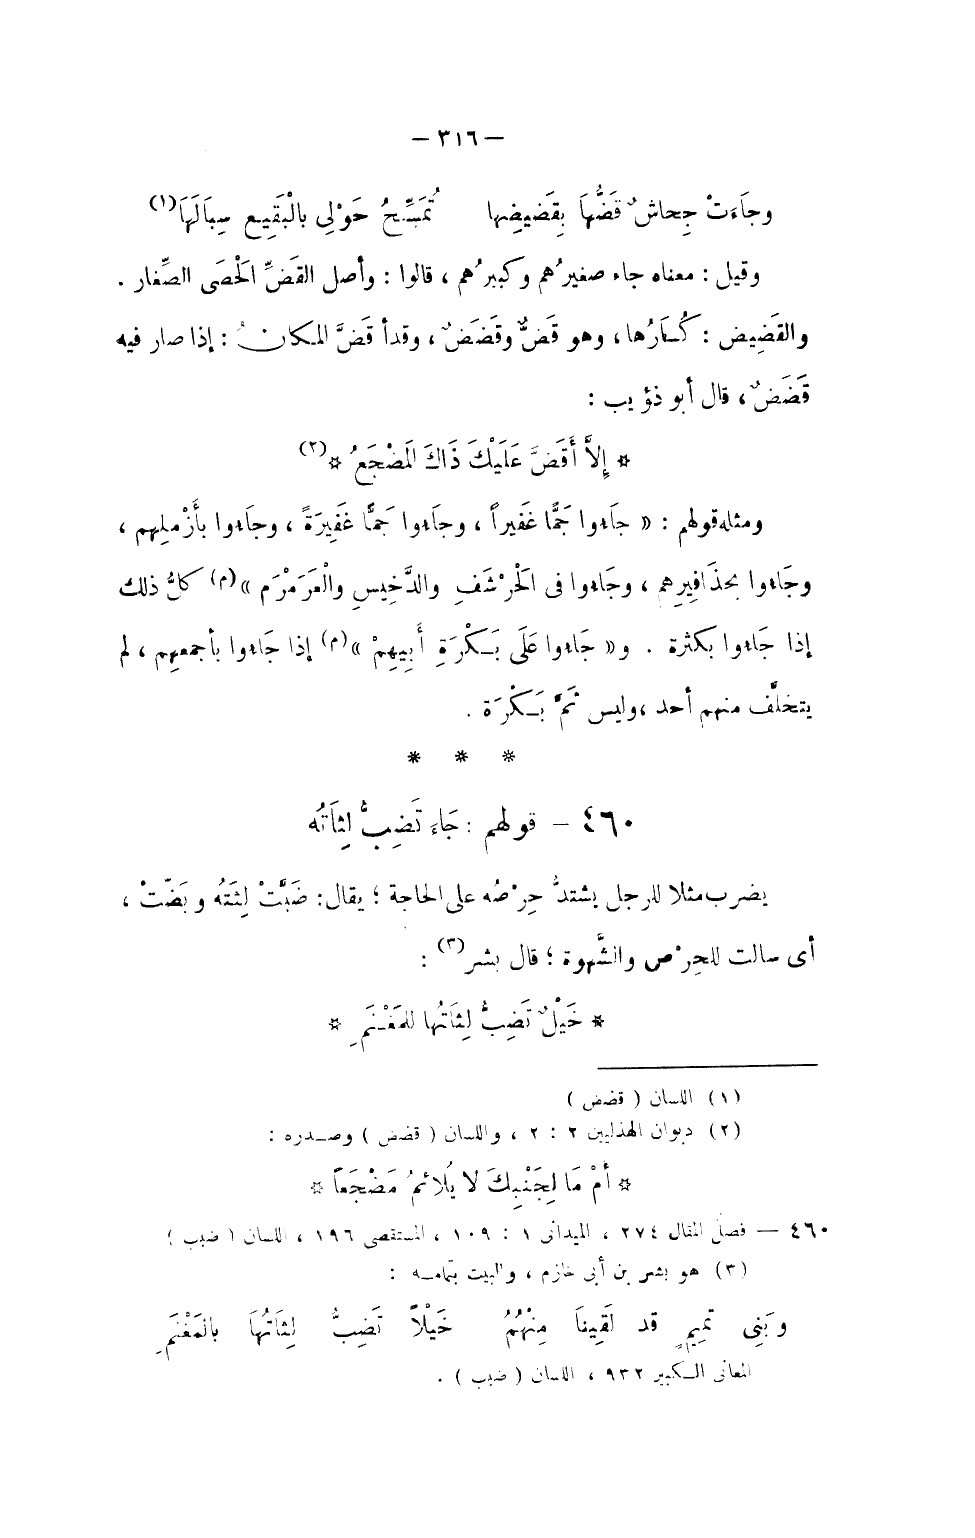 — ٣١٦ —
وجَاءَتْ جِحاشٌ قَضُّهَا بِقَضِيضِها تُمَسِّحُ حَوْلِى بالْبَقِيعِ سِبَالَهَا(١)
وقيل : معناه جاء صغيرُهم وكبيرُهم ، قالوا : وأصل القَضِّ الْحَصَى الصِّغار .
والقَضِيض : كُسارُها ، وهو قَضٌّ وقَضَضٌ ، وقدأ قَضَّ المكانُ : إذا صار فيه
قَضَضٌ ، قال أبو ذؤيب :
* إلاَّ أَقَضَّ عَلَيْكَ ذَاكَ المَضْجَعُ *(٢)
ومثله قولهم : « جَاءوا جَمًّا غَفيراً ، وجَاءوا جَمًّا غَفِيرَةً ، وجاءوا بأَزْملِهم ،
وجَاءوا بحذَافِيرِهم ، وجَاءوا فى الْحَرْشَفِ والدَّخِيسِ والْعَرَمْرَم »(م) كلُّ ذلك
إذا جَاءوا بكثرة . و« جَاءوا عَلَى بَكْرَةِ أَبِيهِمْ »(م) إذا جَاءوا بأجمعهم ، لم
يتخلَّف منهم أحد ، وليس ثَمَّ بَكْرَة .
* * *
٤٦٠ – قولهم : جَاءَ تَضِبُّ لِثَاتُه
يضرب مثلا للرجل يشتدُّ حِرْصُه على الحاجة ؛ يقال : ضَبَّتْ لِثَتُه وبَضّتْ ،
أى سالت للحِرْص والشَّهوة ؛ قال بشر(٣) :
* خَيْلٌ تَضِبُّ لِثَاتُها للمَغْنَمِ *
(١) اللسان ( قضض )
(٢) ديوان الهذليين ٢ : ٢ ، واللسان ( قضض ) وصدره :
* أَمْ مَا لِجَنْبِكَ لا يُلائمُ مَضْجَعاً *
٤٦٠ — فصل المقال ٢٧٤ ، الميدانى ١ : ١٠٩ ، المستقصى ١٩٦ ، اللسان ( ضبب )
(٣) هو بشر بن أبى خازم ، والبيت بتمامه :
وبَنِى تميمٍ قد لَقِينَا مِنْهُمُ خَيْلاً تَضِبُّ لِثَاتُهَا بالمَغْنَمِ
المعانى الكبير ٩٣٢ ، اللسان ( ضبب ) .